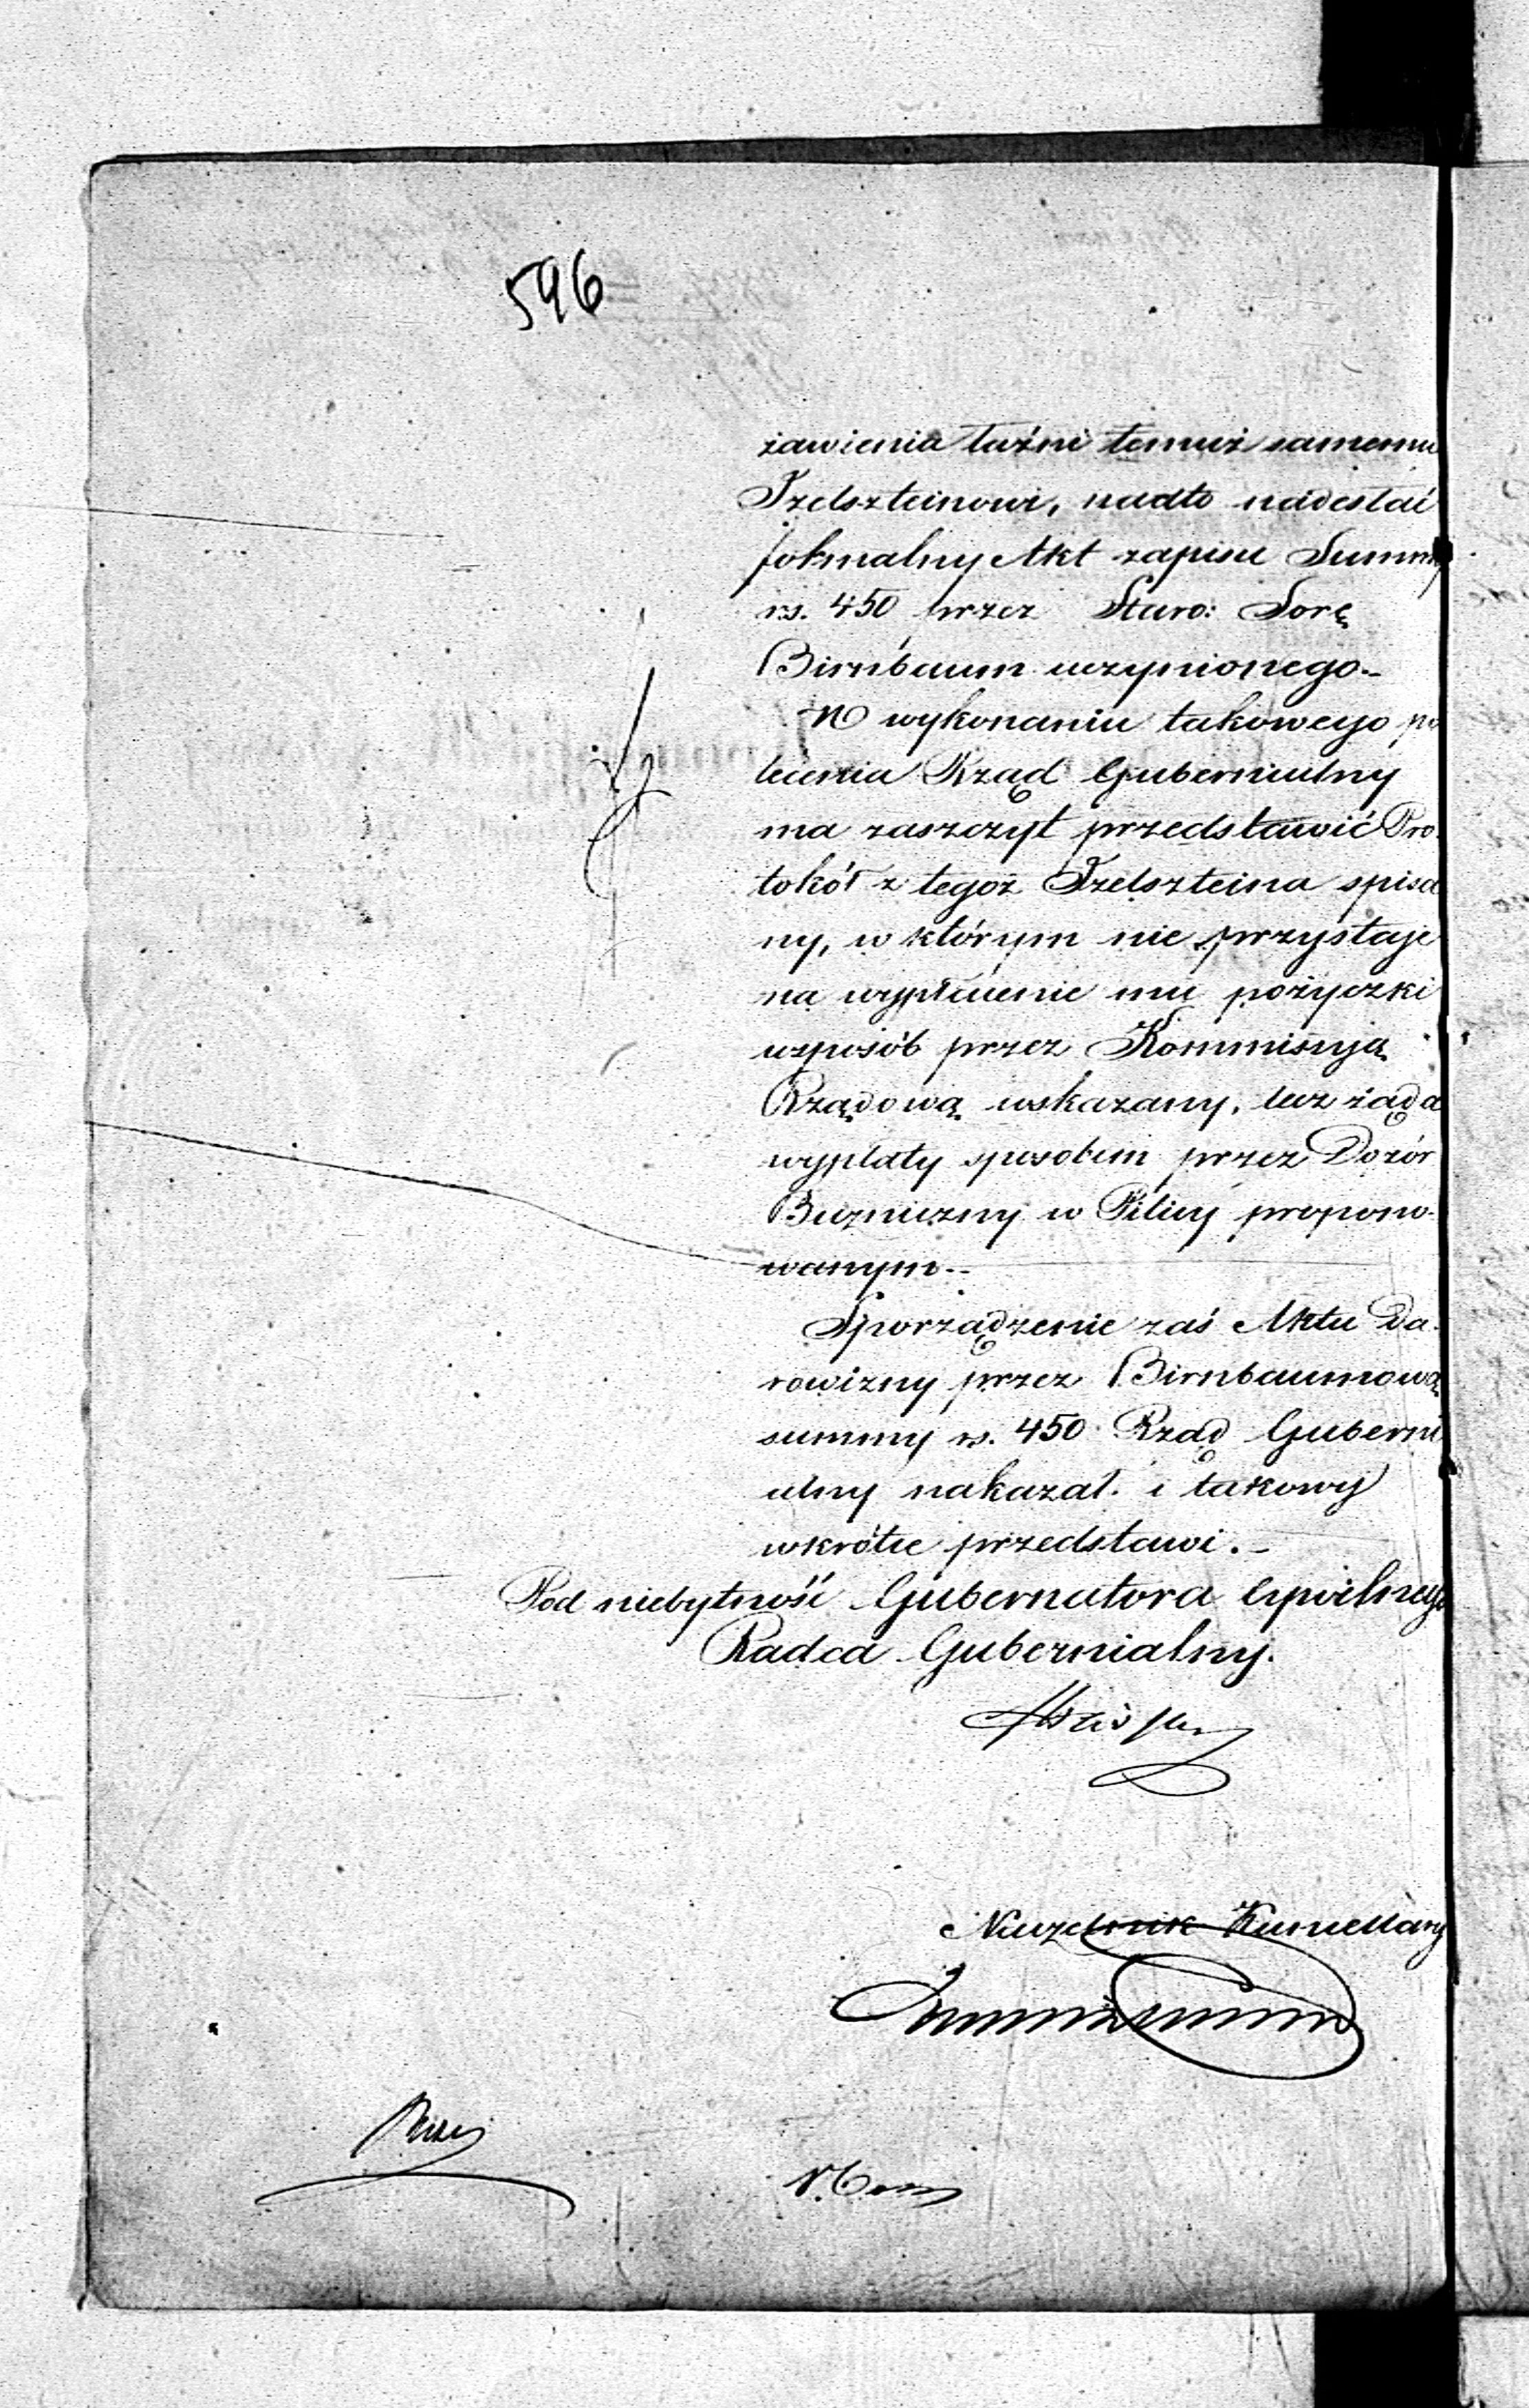 596
żawienia łaźni temuż samemu
Fzelszteinowi, nadto nadesłać
formalny Akt zapisu Summy
rs. 450 przez Staro: Sorę
Birnbaum uczynionego.-
W wykonaniu takowego po
lecenia Rząd Gubernialny
ma zaszczyt przedstawić Pro-
tokół z tegoż Fzelszteina spisa
ny, w którym nie przystaje
na wypłacenie mu pożyczki
wsposób przez Kommissyą
Rządową wskazany, lecz żąda
wypłaty sposobem przez Dozór
Bużniczny w Pilicy propono-
wanym.-
Sporządzenie zaś Aktu Da-
rowizny przez Birnbaumową
summy rs. 450 Rząd Guberni
alny nakazał i takowy
wkrótce przedstawi.-
Pod niebytność Gubernatora Cywilnego
Radca Gubernialny.
Naczelnik Kancellaryi